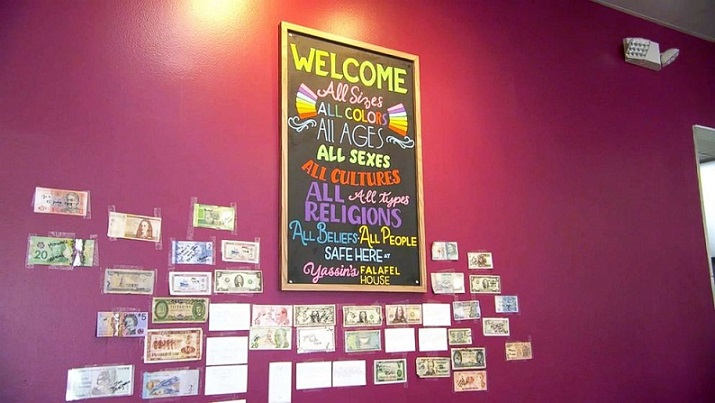 WELCOME
All Sizes
ALL COLORS
All AGES
ALL SEXES
ALL CULTURES
ALL All types
RELIGIONS
ALL BELIEFS-ALL PEOPLE
SAFE HERE AT
Yassin's FALAFEL
HOUSE
20
5